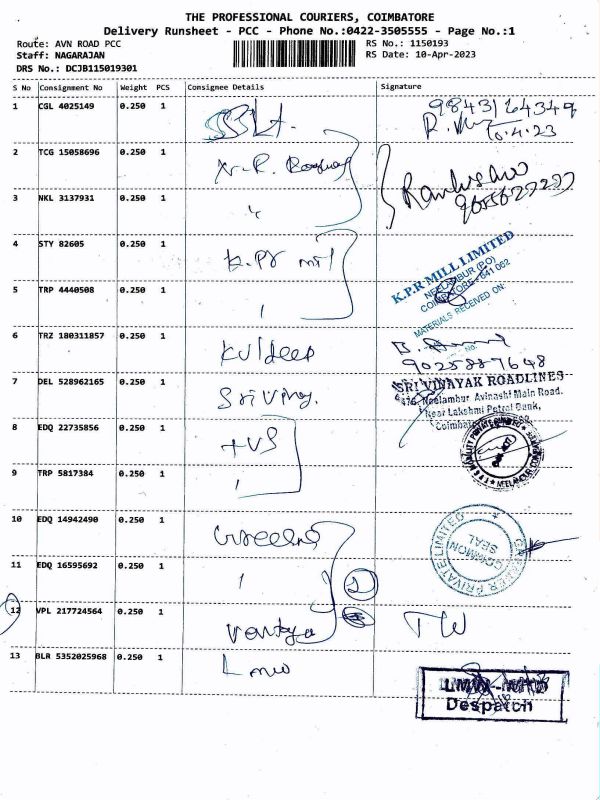 THE PROFESSIONAL COURIERS, COIMBATORE
Delivery Runsheet - PCC - Phone No.:0422-3505555 - Page No.:1
Route: AVN ROAD PCC RS No.: 1150193
Staff: NAGARAJAN RS Date: 10-Apr-2023
DRS No.: DCJB115019301
S No Consignment No Weight PCS Consignee Details Signature
1 CGL 4025149 0.250 1
10.4.23
2 TCG 15058696 0.250 1 N.R.
3 NKL 3137931 0.250 1 "
4 STY 82605 0.250 1 K.PR mil
K.P.R MILL LIMITED
NEELAMBUR (PO)
COIMBATORE - 641 062
MATERIALS RECEIVED ON:
5 TRP 4440508 0.250 1
No.
6 TRZ 180311857 0.250 1 Kuldeep
9025887648
7 DEL 528962165 0.250 1 Sri Vinay.
SRI VINAYAK ROADLINES
Neelambur Avinashi Main Road.
Near Lakshmi Petrol Bunk,
8 EDQ 22735856 0.250 1 TVS
9 TRP 5817384 0.250 1
10 EDQ 14942490 0.250 1
PRIVATE LIMITED
COMMON
SEAL
11 EDQ 16595692 0.250 1
2
12 VPL 217724564 0.250 1 TW
13 BLR 5352025968 0.250 1 Lmw
Despatch